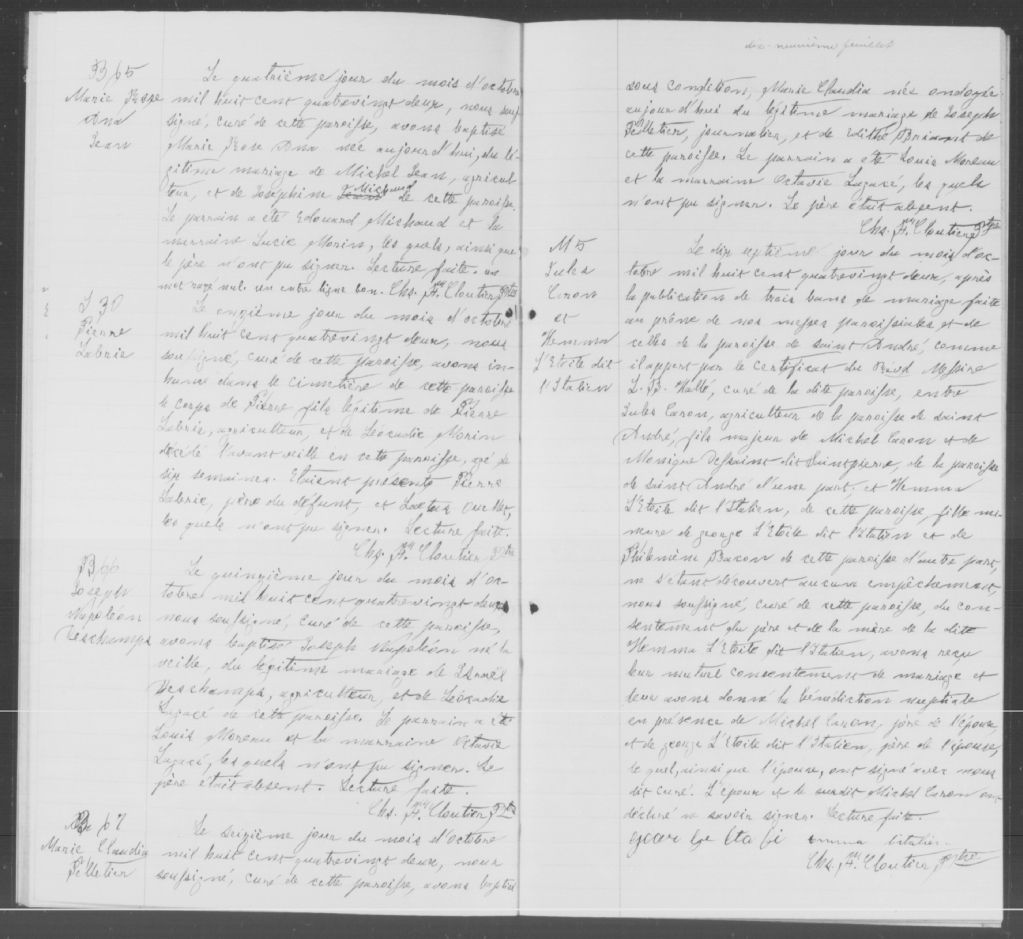 B 65
Marie Rose
Ana
Jean
Le quatrième jour du mois d'octobre
mil huit cent quatrevingt deux, nous sous-
signé, curé de cette paroisse, avons baptisé
Marie Rose Ana née aujourd'hui, du lé-
gitime mariage de Michel Jean, agricul-
teur, et de Joséphine Michaud de cette paroisse.
Le parrain a été Edouard Michaud et la
marraine Lucie Morin, les quels, ainsi que
le père n'ont pu signer. Lecture faite. un
mot rayé nul. un entre ligne bon. Chs. F. Cloutier, Ptre
S 30
Pierre
Labrie
Le onzième jour du mois d'octobre
mil huit cent quatrevingt deux, nous
soussigné, curé de cette paroisse, avons in-
humé dans le cimetière de cette paroisse
le corps de Pierre, fils légitime de Pierre
Labrie, agriculteur, et de Léocadie Morin
décédé l'avant veille en cette paroisse, agé de
six semaines. Etaient présents Pierre
Labrie, père du défunt, et Ouellet,
les quels n'ont pu signer. Lecture faite.
Chs. F. Cloutier, Ptre
B 66
Joseph
Napoléon
Deschamps
Le quinzième jour du mois d'oc-
tobre mil huit cent quatrevingt deux,
nous soussigné, curé de cette paroisse,
avons baptisé Joseph Napoléon né la
veille, du légitime mariage de Israël
Deschamps, agriculteur, et de Léocadie
Lagacé de cette paroisse. Le parrain a été
Louis Moreau et la marraine Octavie
Lagacé, les quels n'ont pu signer. Le
père était absent. Lecture faite.
Chs. F. Cloutier, Ptre
B 67
Marie Claudia
Pelletier
Le seizième jour du mois d'octobre
mil huit cent quatrevingt deux, nous
soussigné, curé de cette paroisse, avons baptisé
dix-neuvième feuillet
sous condition, Marie Claudia née ondoyée
aujourd'hui du légitime mariage de Joseph
Pelletier, journalier, et de Edithe Briant de
cette paroisse. Le parrain a été Louis Moreau
et la marraine Octavie Lagacé, les quels
n'ont pu signer. Le père était absent.
Chs. F. Cloutier, Ptre
M 5
Jules
Caron
et
Hemma
L'Etoile dit
l'Italien
Le dix septième jour du mois d'oc-
tobre mil huit cent quatrevingt deux, après
la publication de trois bans de mariage faite
au prône de nos messes paroissiales et de
celles de la paroisse de saint André, comme
il appert par le certificat du Révd Messire
L. B. Hallé, curé de la dite paroisse, entre
Jules Caron, agriculteur de la paroisse de saint
André, fils majeur de Michel Caron et de
Monique Dessaint dit Saintpierre, de la paroisse
de saint André d'une part, et Hemma
L'Etoile dit l'Italien, de cette paroisse, fille mi-
neure de george L'Etoile dit l'Italien et de
Philomène Bacon de cette paroisse d'autre part,
ne s'étant découvert aucun empêchement,
nous soussigné, curé de cette paroisse, du con-
sentement du père et de la mère de la dite
Hemma L'Etoile dit l'Italien, avons reçu
leur mutuel consentement de mariage et
leur avons donné la bénédiction nuptiale
en présence de Michel Caron, père de l'époux,
et de george L'Etoile dit l'Italien, père de l'épouse,
le quel, ainsi que l'épouse, ont signé avec nous
dit curé. L'époux et le susdit Michel Caron ont
déclaré ne savoir signer. Lecture faite.
emma litalien
Chs. F. Cloutier, Ptre